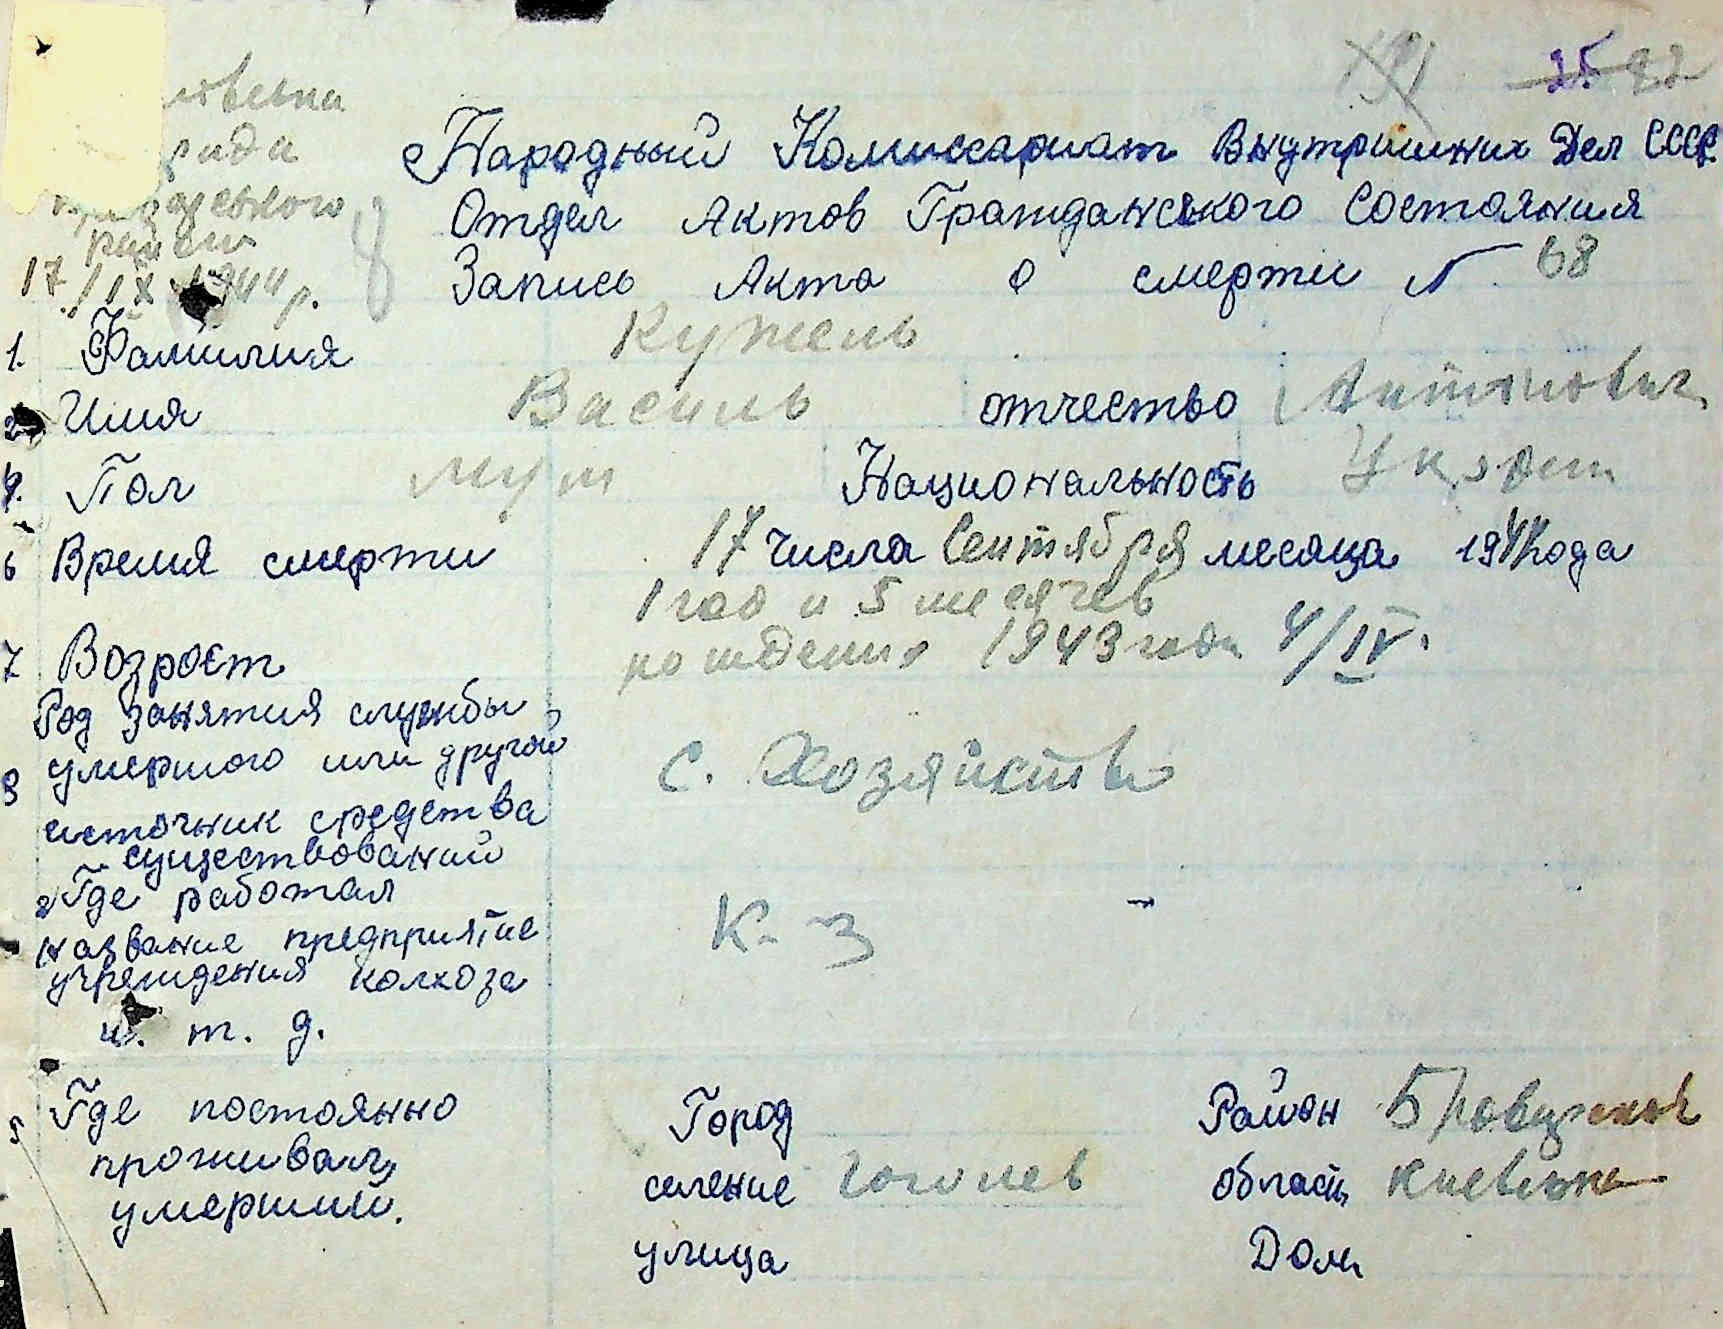 25 22
рада
17/IX 1944 р.
Народный Комиссариат Внутришних Дел СССР.
Отдел Актов Гражданского Состояния
Запись Акта о смерти № 68
1. Фамилия Кужель
2. Имя Василь отчество Антонович
4. Пол муж Национальность Украин
6 Время смерти 17 числа Сентября месяца 1944 года
1 год и 5 месячев
7 Возрост рождения 1943 года 4/IV.
Род занятия службы
8 умершого или другой С. Хозяйство
источник средства
существований
Где работал
название предприятие К-З
учреждения колхоза
и. т. д.
5 Где постоянно Город Район Броварской
проживал, селение Гоголев область Киевська
умерший. улица Дом